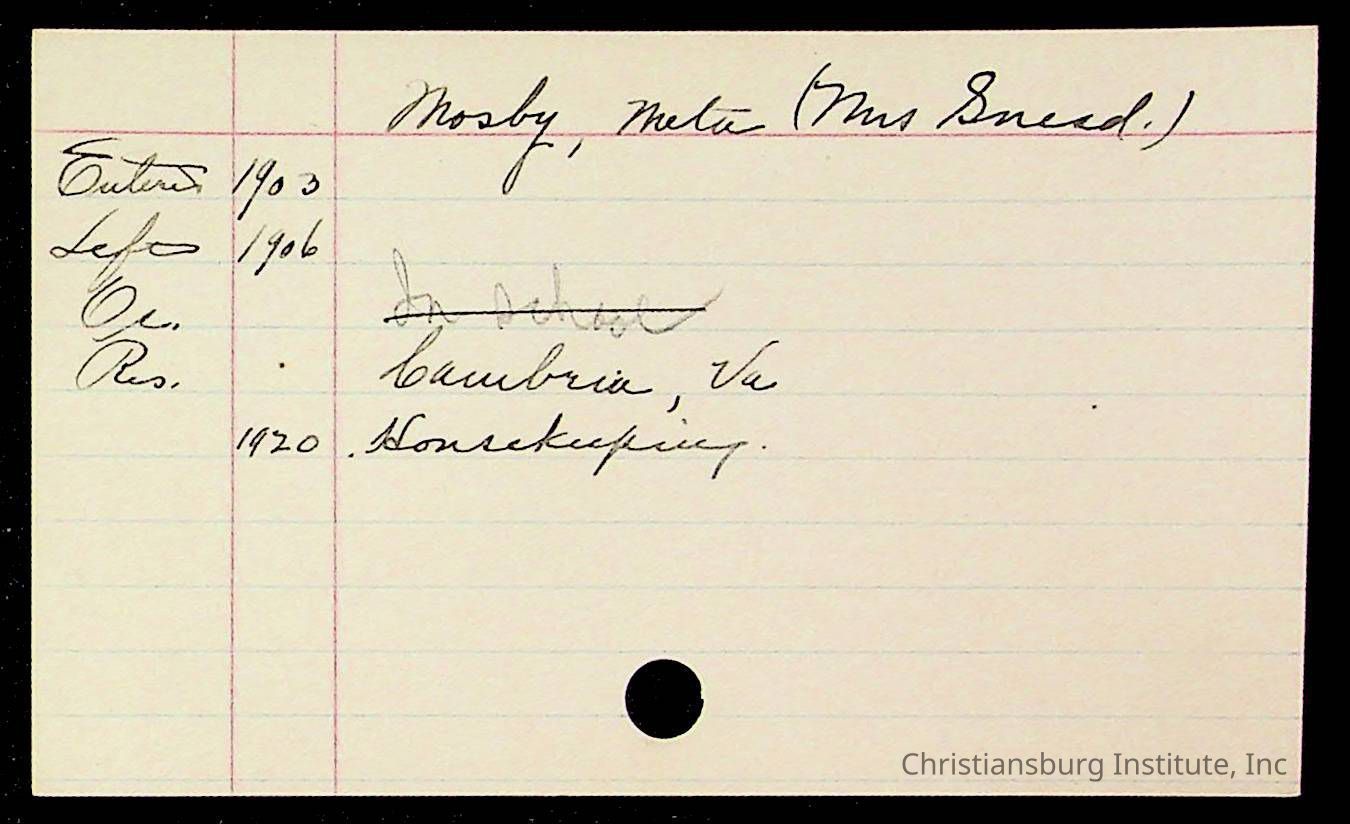 Mosby, Meta (Mrs Snead.)
Entered 1903
Left 1906
Oc. In school
Res. Cambria, Va
1920. Housekeeping.
Christiansburg Institute, Inc